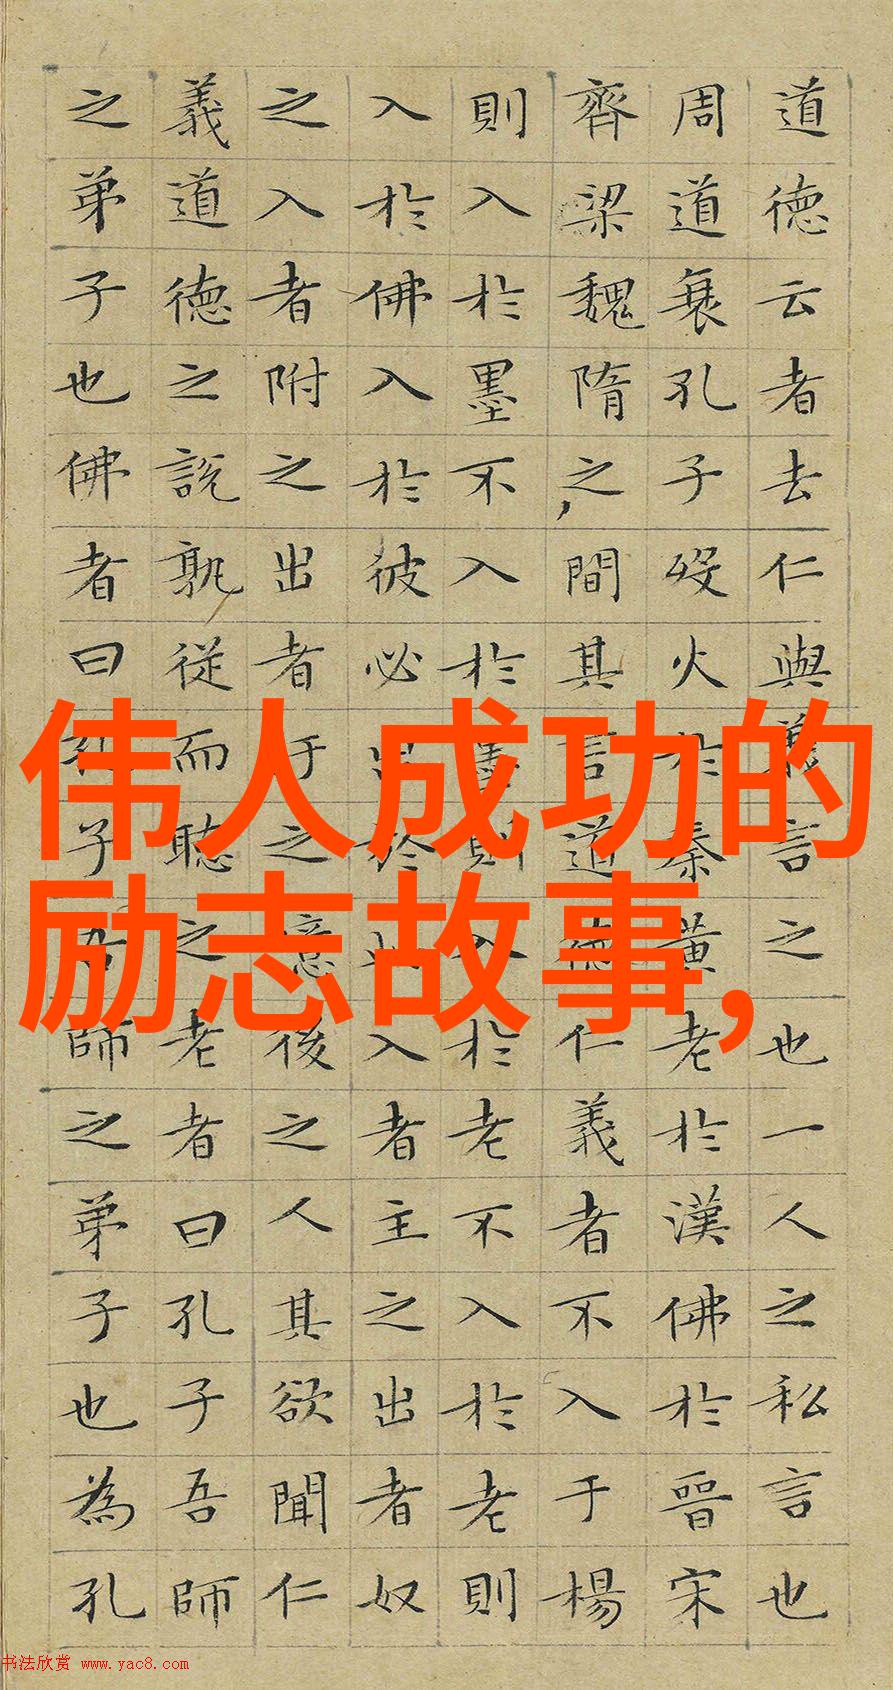 道德云者去仁與義言之也一人之私言也
周道衰孔子歿火於秦黃老於漢佛於晉宋
齊梁魏隋之間其言道德仁義者不入于楊
則入於墨不入於墨則入於老不入於老則
入於佛入於彼必出於此入者主之出者奴
之入者附之出者汙之噫後之人其欲聞仁
義道德之說孰從而聽之老者曰孔子吾師
之弟子也佛者曰孔子吾師之弟子也為孔
伟人成功的
励志故事,
书法欣赏 www.yac8.com